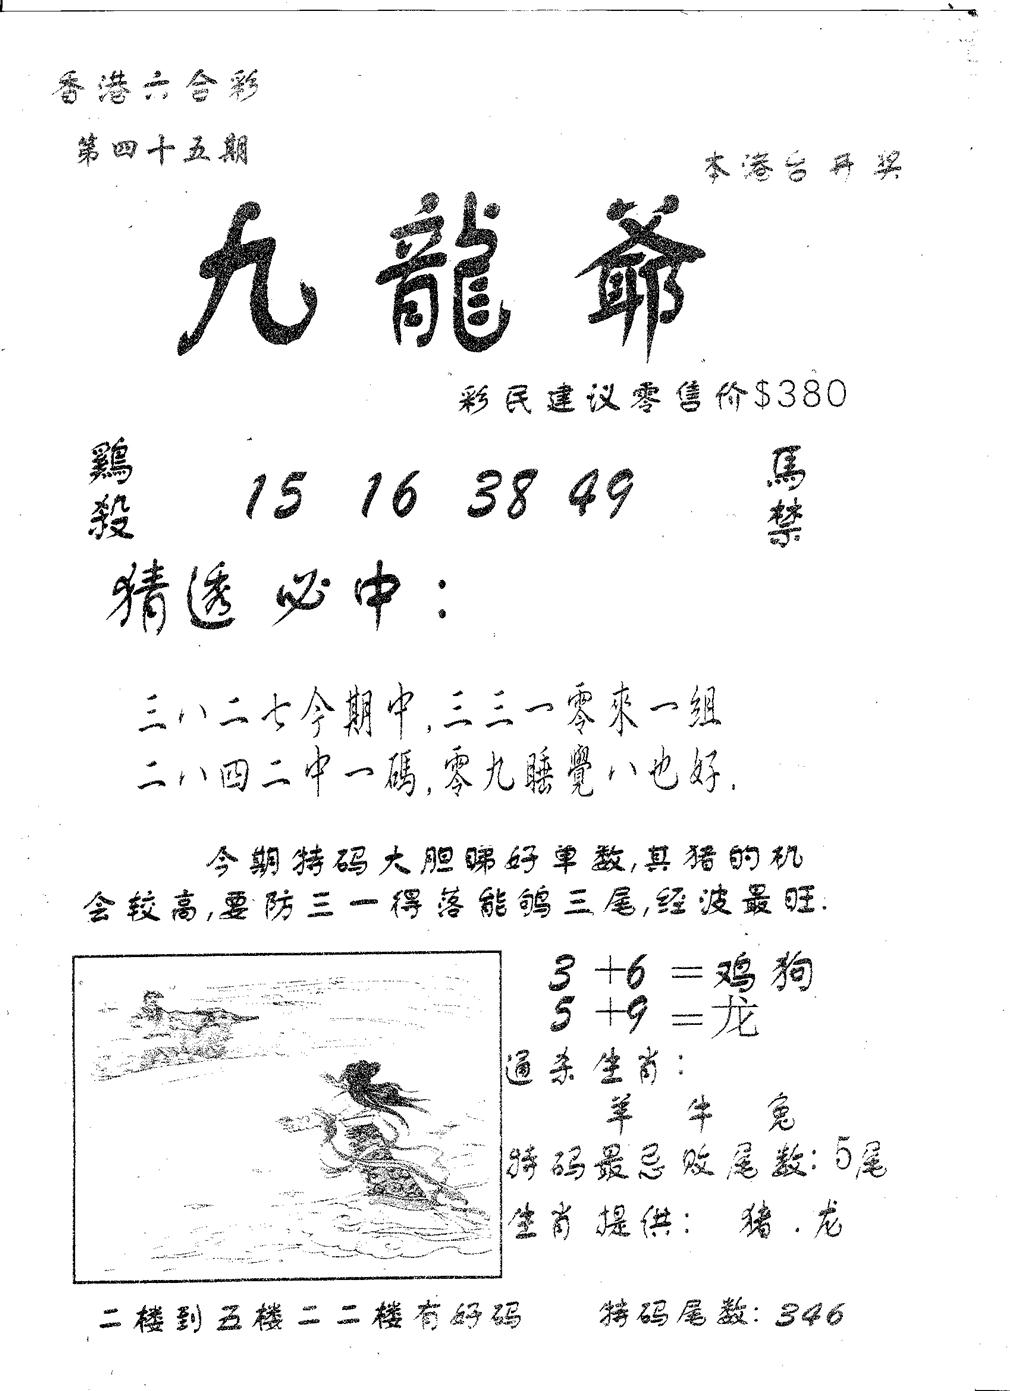 香港六合彩
第四十五期
本港台开奖
九龍爺
彩民建议零售价$380
鷄殺 15 16 38 49 馬禁
猜透必中：
三八二七今期中,三三一零來一組
二八四二中一碼,零九睡覺八也好.
今期特码大胆睇好单数,其猪的机
会较高,要防三一得落能鸲三尾,经波最旺.
3+6=鸡狗
5+9=龙
通杀生肖：
羊 牛 兔
特码最忌败尾数：5尾
生肖提供： 猪.龙
二楼到五楼二二楼有好码 特码尾数：346